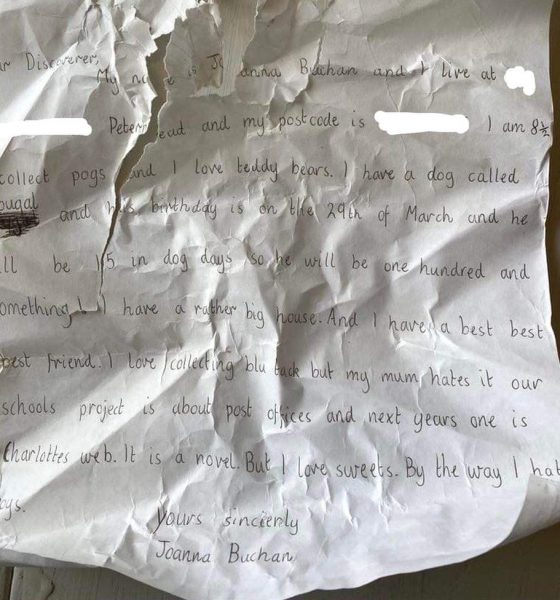 Discoverer,
My is Joanna Buchan and I live at
Peterhead and my postcode is I am 8½
collect pogs and I love teddy bears. I have a dog called
ougal
and his birthday is on the 29th of March and he
ll be 15 in dog days so he will be one hundred and
omething! I have a rather big house. And I have a best best
best friend. I love collecting blu tack but my mum hates it our
schools project is about post offices and next years one is
Charlottes web. It is a novel. But I love sweets. By the way I hat
oys.
Yours sincierly
Joanna Buchan